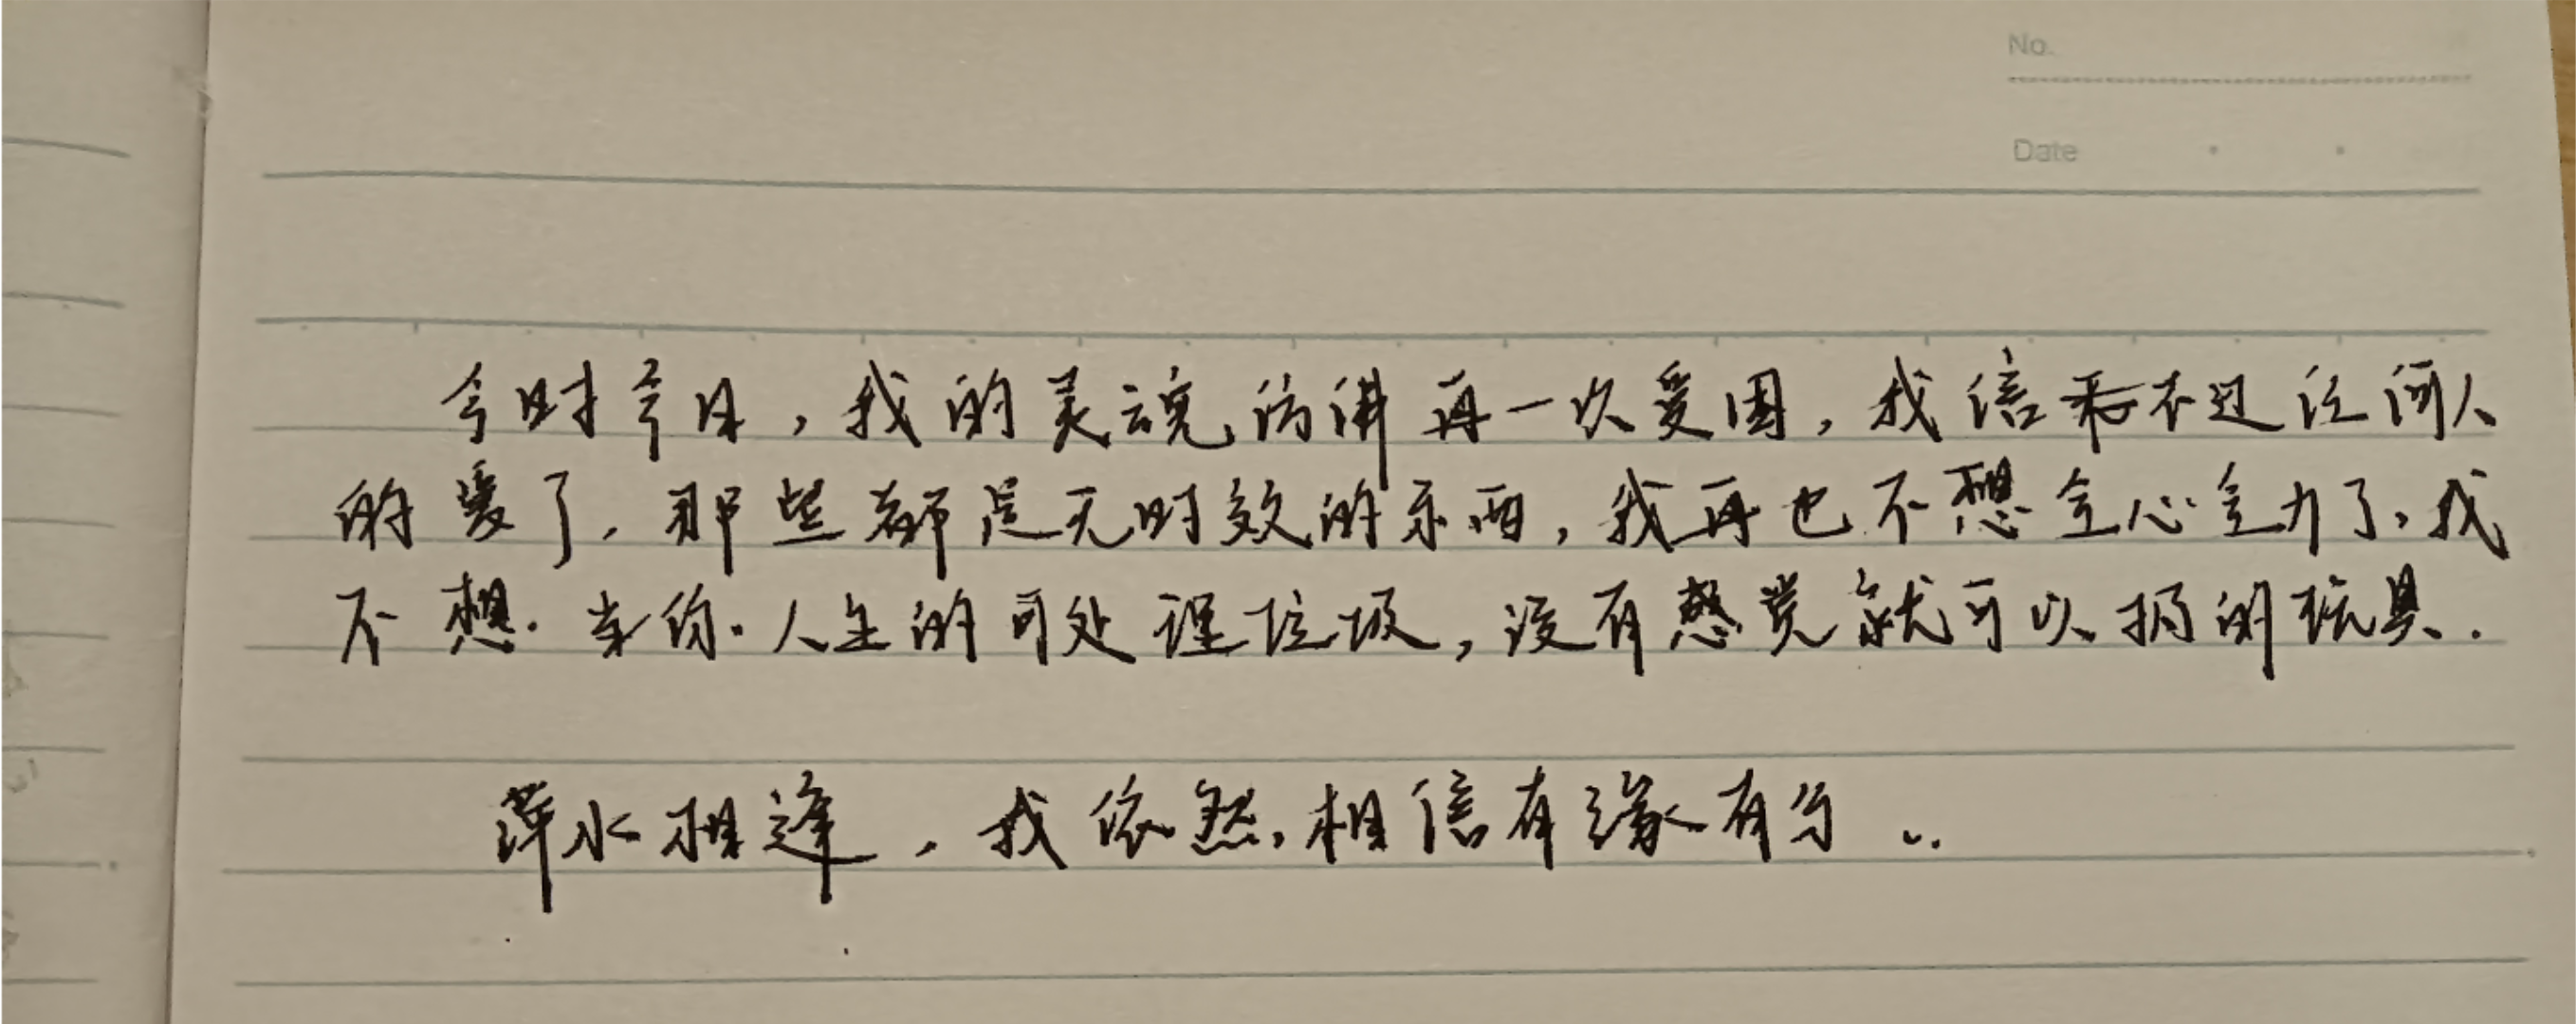 No.
Date
今时今日，我的灵魂仿佛再一次受困，我信不过任何人
的爱了，那些都是无时效的东西，我再也不想全心全力了，我
不想.当你.人生的可处理垃圾，没有感觉就可以扔的玩具.
萍水相逢，我依然,相信有缘有分...